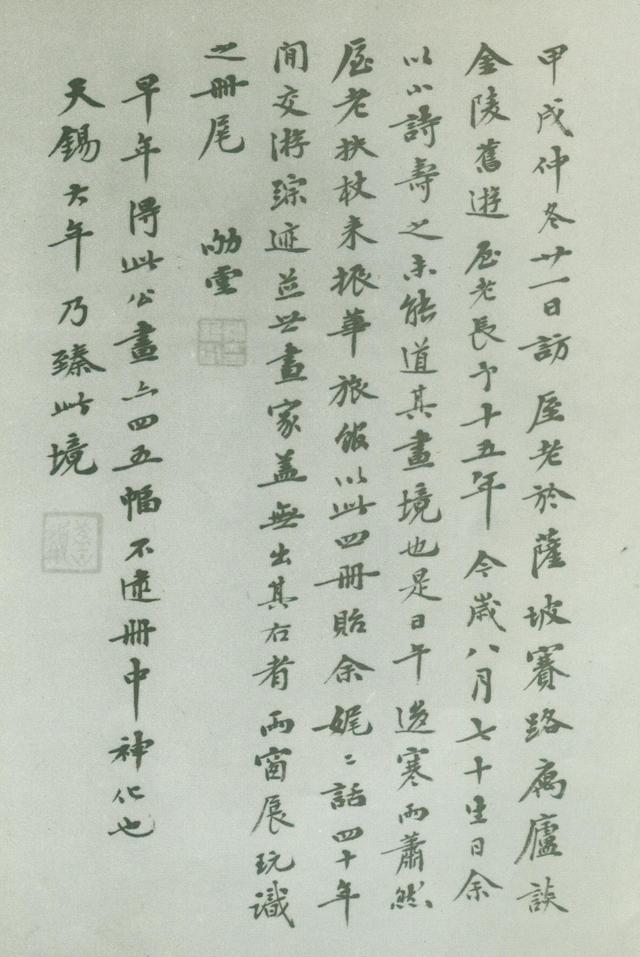 甲戌仲冬廿一日訪厔老於薩坡賽路寓廬談
金陵舊遊厔老長予十五年今歲八月七十生日余
以小詩壽之未能道其畫境也是日午後寒雨蕭然
厔老扶杖來振華旅館以此四冊貽余娓〻話四十年
間交游踪迹並世畫家蓋無出其右者雨窗展玩識
之冊尾 劬堂
早年得此公畫六四五幅不逮冊中神化也
天錫大年乃臻此境